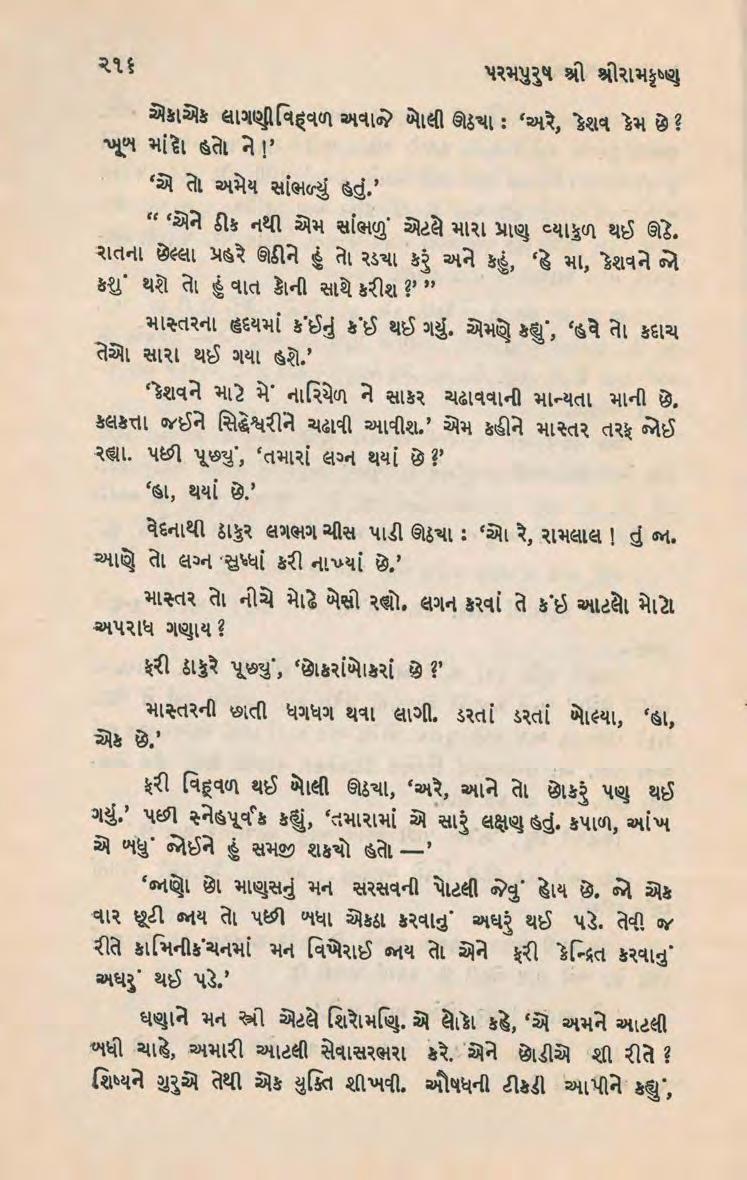 ૨૧૬
પરમપુરુષ શ્રી શ્રીરામકૃષ્ણ
એકાએક લાગણીવિહ્‌વળ અવાજે બોલી ઊઠ્યા : ‘અરે, કેશવ કેમ છે ?
ખૂબ માંદો હતો ને !’
‘એ તો અમેય સાંભળ્યું હતું.’
“ ‘એને ઠીક નથી એમ સાંભળું એટલે મારા પ્રાણ વ્યાકુળ થઈ ઊઠે.
રાતના છેલ્લા પ્રહરે ઊઠીને હું તો રડ્યા કરું અને કહું, ‘હે મા, કેશવને જો
કશું થશે તો હું વાત કોની સાથે કરીશ ?’ ”
માસ્તરના હૃદયમાં કંઈનું કંઈ થઈ ગયું. એમણે કહ્યું, ‘હવે તો કદાચ
તેઓ સારા થઈ ગયા હશે.’
‘કેશવને માટે મેં નારિયેળ ને સાકર ચઢાવવાની માન્યતા માની છે.
કલકત્તા જઈને સિદ્ધેશ્વરીને ચઢાવી આવીશ.’ એમ કહીને માસ્તર તરફ જોઈ
રહ્યા. પછી પૂછ્યું, ‘તમારાં લગ્ન થયાં છે ?’
‘હા, થયાં છે.’
વેદનાથી ઠાકુર લગભગ ચીસ પાડી ઊઠ્યા : ‘ઓ રે, રામલાલ ! તું જા.
આણે તો લગ્ન સુધ્ધાં કરી નાખ્યાં છે.’
માસ્તર તો નીચે મોઢે બેસી રહ્યો. લગન કરવાં તે કંઇ આટલો મોટો
અપરાધ ગણાય ?
ફરી ઠાકુરે પૂછ્યું, ‘છોકરાંબોકરાં છે ?’
માસ્તરની છાતી ધગધગ થવા લાગી. ડરતાં ડરતાં બોલ્યા, ‘હા,
એક છે.’
ફરી વિહ્‌વળ થઈ બોલી ઊઠ્યા, ‘અરે, આને તો છોકરું પણ થઈ
ગયું.’ પછી સ્નેહપૂર્વક કહ્યું, ‘તમારામાં એ સારું લક્ષણ હતું. કપાળ, આંખ
એ બધું જોઈને હું સમજી શક્યો હતો —’
‘જાણો છો માણસનું મન સરસવની પોટલી જેવું હોય છે. જો એક
વાર છૂટી જાય તો પછી બધા એકઠા કરવાનું અઘરું થઈ પડે. તેવી જ
રીતે કામિનીકંચનમાં મન વિખેરાઈ જાય તો એને ફરી કેન્દ્રિત કરવાનું
અઘરું થઈ પડે.’
ઘણાને મન સ્ત્રી એટલે શિરોમણિ. એ લોકો કહે, ‘એ અમને આટલી
બધી ચાહે, અમારી આટલી સેવાસરભરા કરે. એને છોડીએ શી રીતે ?
શિષ્યને ગુરુએ તેથી એક યુક્તિ શીખવી. ઔષધની ટીકડી આપીને કહ્યું,